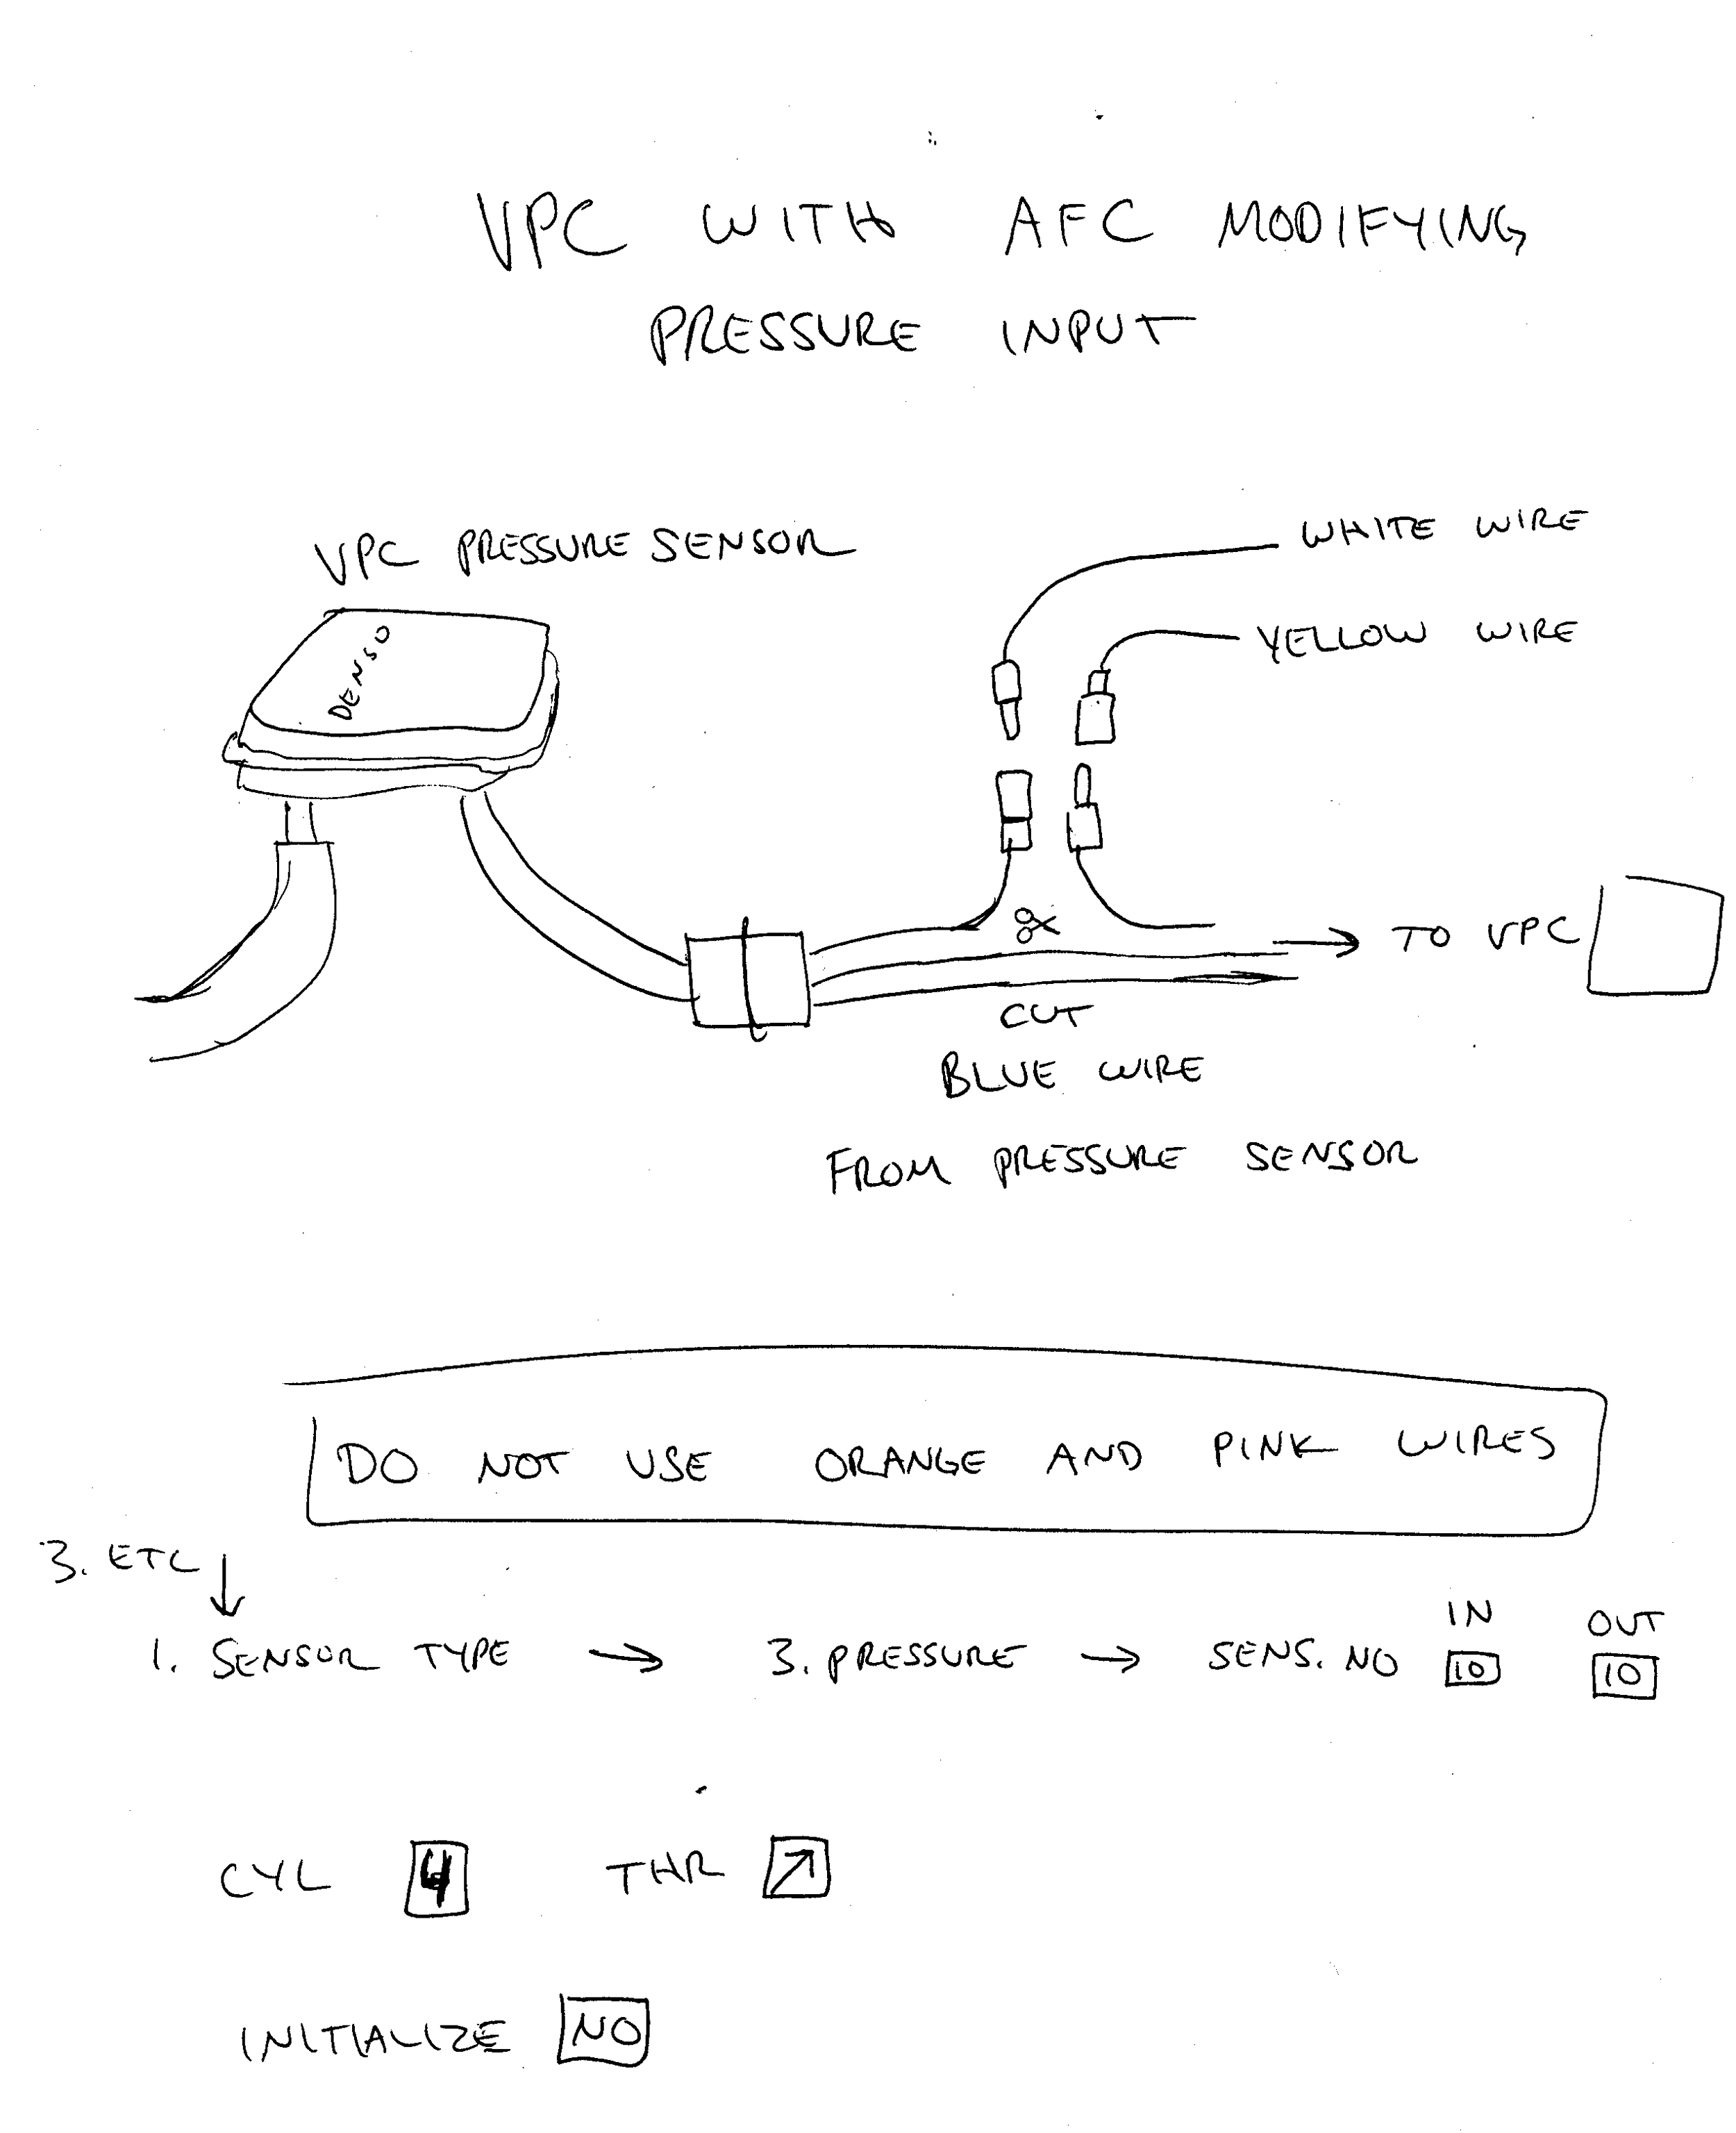 VPC WITH AFC MODIFYING
PRESSURE INPUT
VPC PRESSURE SENSOR
WHITE WIRE
YELLOW WIRE
DENSO
TO VPC
CUT
BLUE WIRE
FROM PRESSURE SENSOR
DO NOT USE ORANGE AND PINK WIRES
3. ETC ↓
IN OUT
1. SENSOR TYPE → 3. PRESSURE → SENS. NO 10 10
CYL 4 THR ↗
INITIALIZE NO